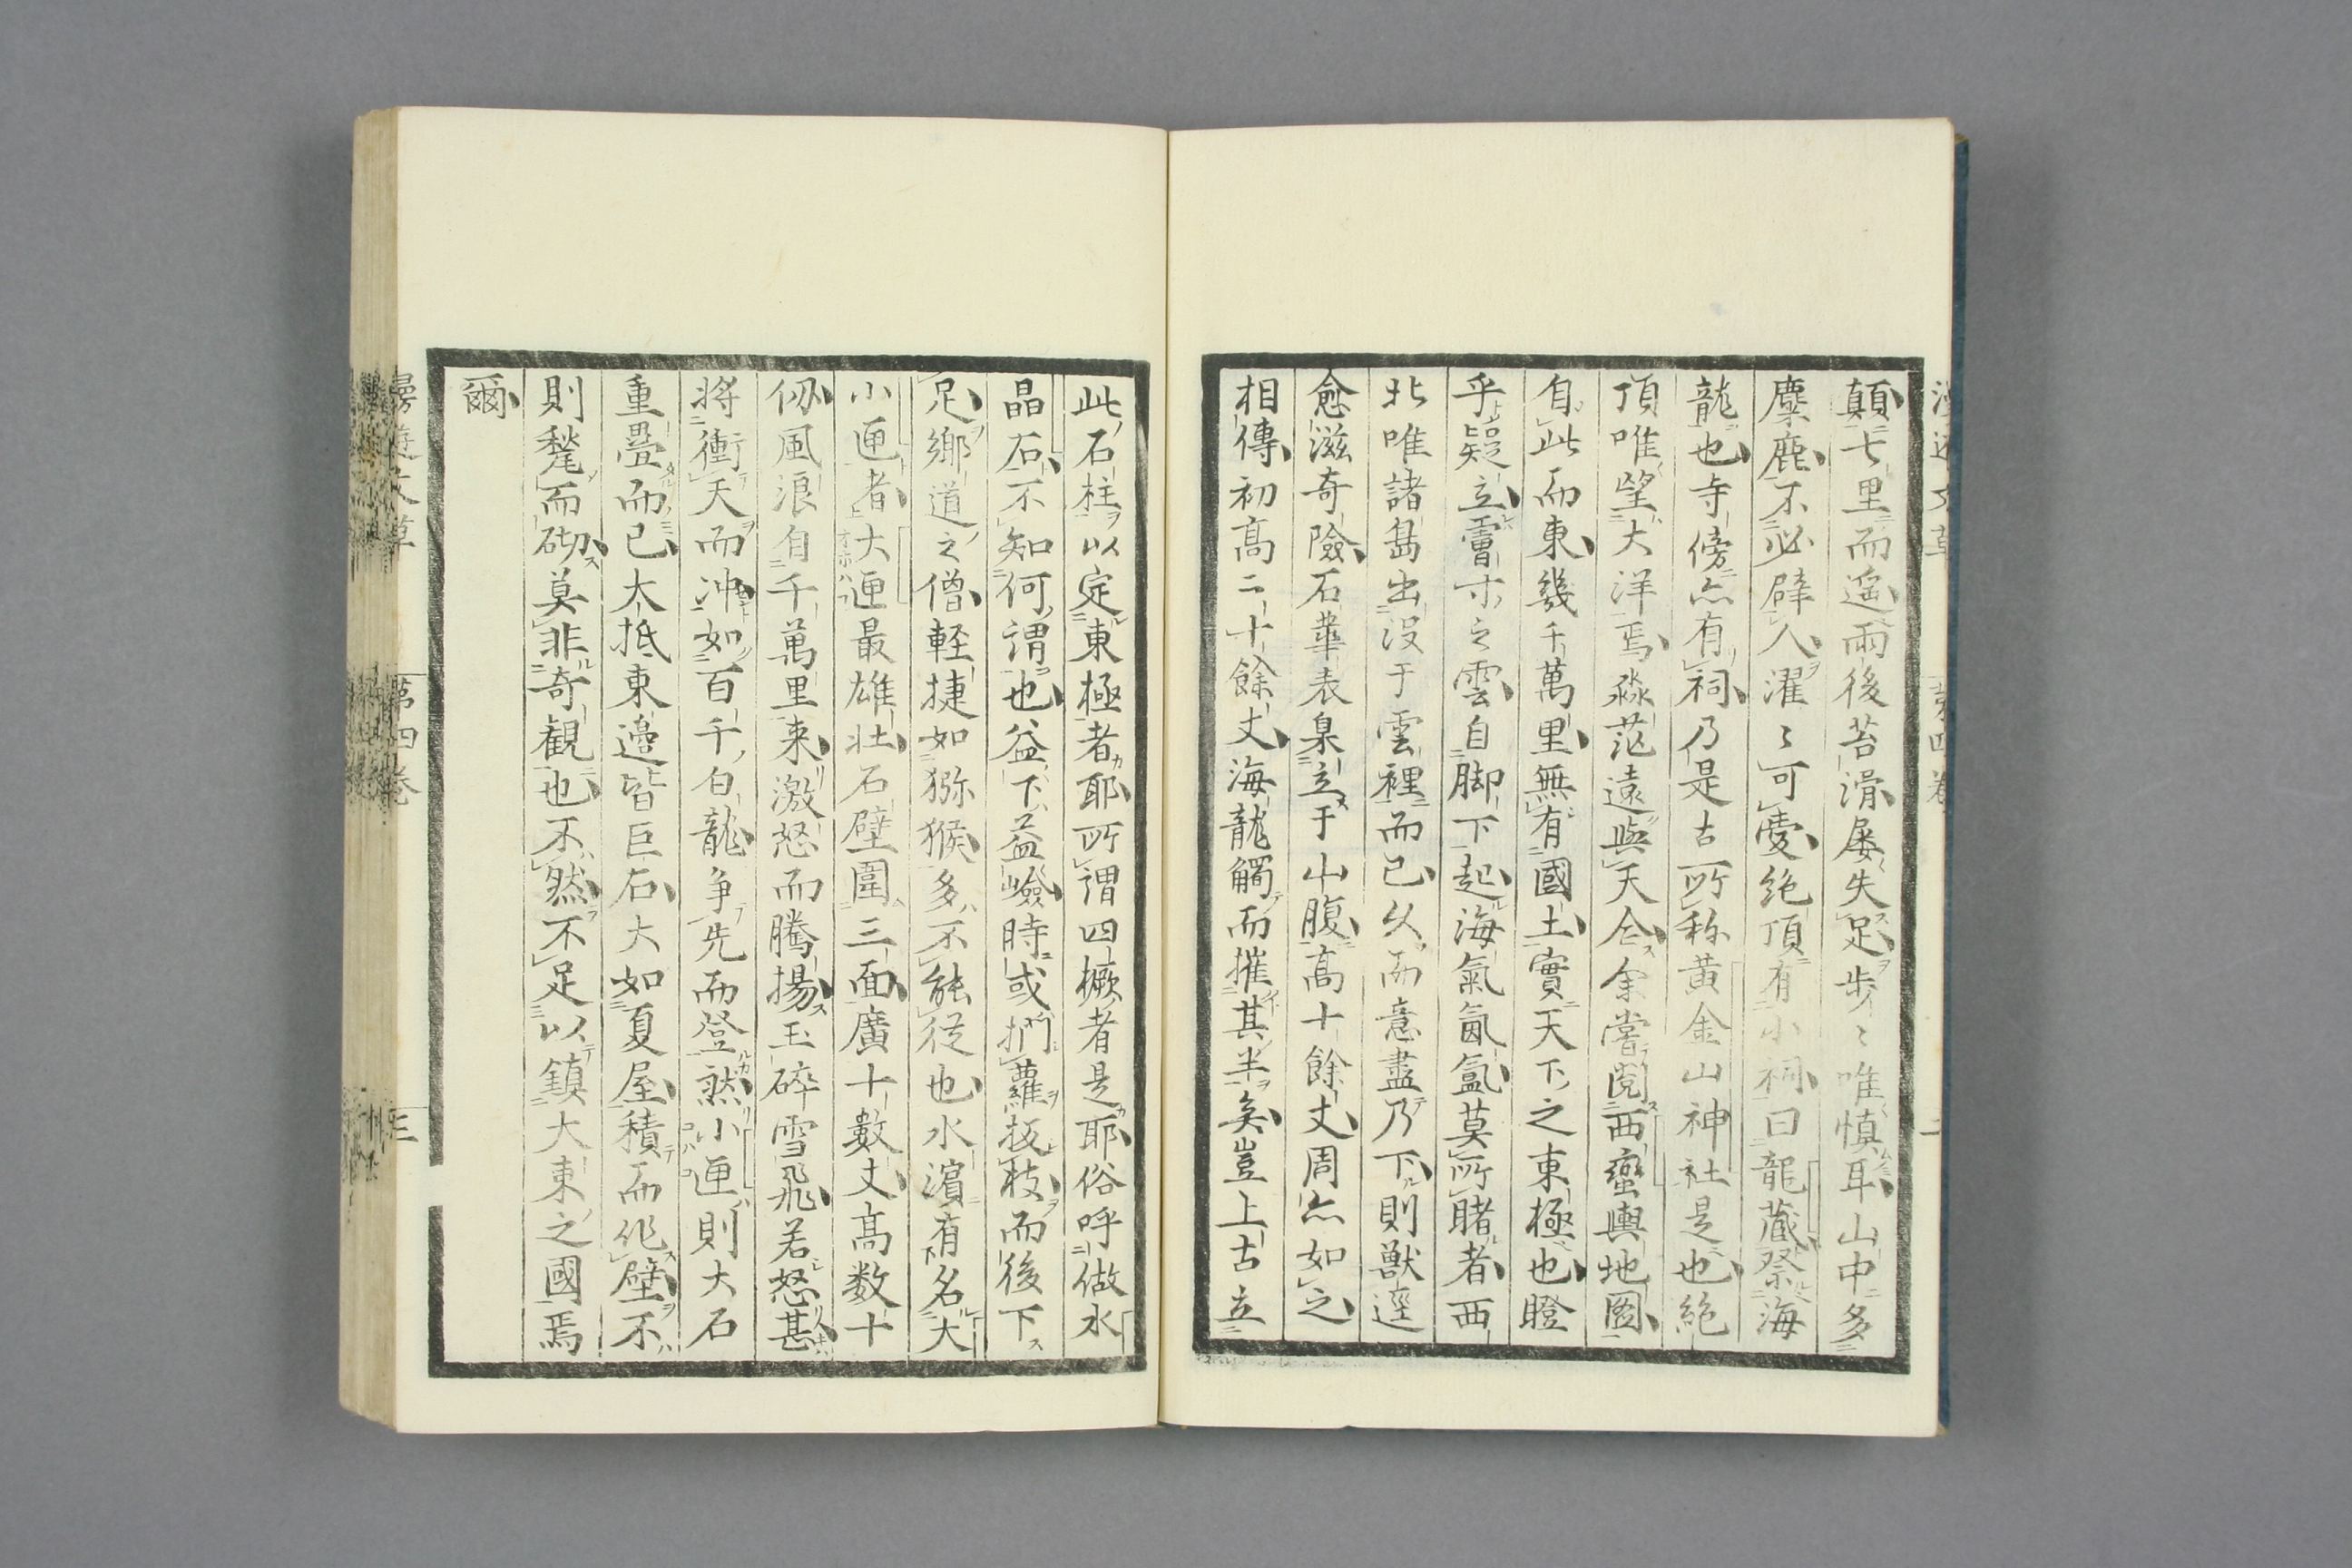 顛七里而遥雨後苔滑屡失足歩〻唯慎耳山中多
麋鹿不必辟人濯〻可愛絶頂有小祠曰龍蔵祭海
龍也寺傍亦有祠乃是古所称黄金山神社是也絶
頂唯望大洋焉淼茫遠與天仝余嘗閲西蠻輿地図
自此而東幾千萬里無有國土實天下之東極也瞪
乎疑立霤寸之雲自脚下起海氣氤氳莫所睹者西
北唯諸島出没于雲裡而已久而意盡乃下則獣逕
愈滋奇險石華表臬立于山腹高十餘丈周亦如之
相傳初高二十餘丈海龍觸而摧其半矣豈上古立
此石柱以定東極者耶所謂四橛者是耶俗呼做水
晶石不知何謂也益下益嶮時或捫蘿扳枝而後下
足郷道之僧軽捷如猕猴多不能従也水濱有名大
小匣者大匣最雄壮石壁圍三面廣十數丈高数十
仭風浪自千萬里来激怒而騰揚玉碎雪飛若怒甚
将衝天而冲如百千白龍争先而登然小匣則大石
重疊而已大抵東邉皆巨石大如夏屋積而作壁不
則甃而砌莫非奇観也不然不足以鎮大東之國焉
爾
漫遊文草
第四巻
三